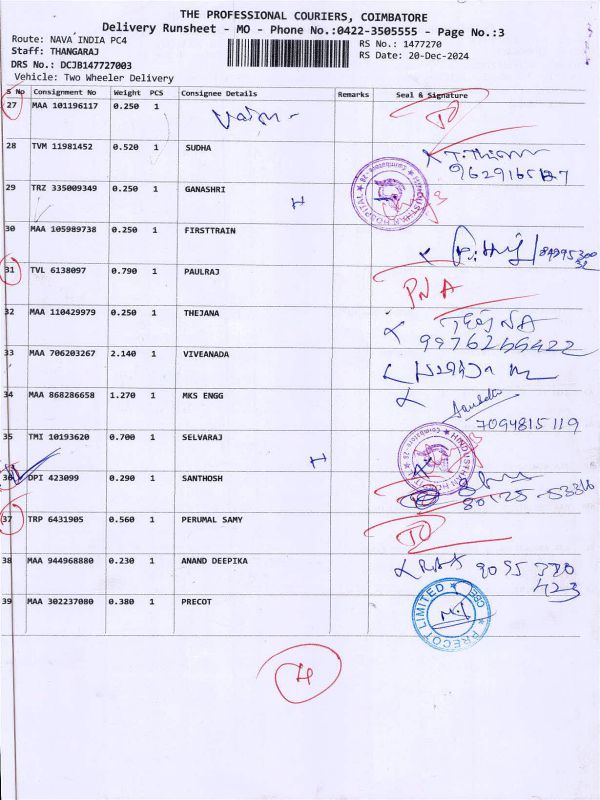 THE PROFESSIONAL COURIERS, COIMBATORE
Delivery Runsheet - MO - Phone No.:0422-3505555 - Page No.:3
Route: NAVA INDIA PC4
RS No.: 1477270
Staff: THANGARAJ
RS Date: 20-Dec-2024
DRS No.: DCJB147727003
Vehicle: Two Wheeler Delivery
S No Consignment No Weight PCS Consignee Details Remarks Seal & Signature
27 MAA 101196117 0.250 1
28 TVM 11981452 0.520 1 SUDHA
29 TRZ 335009349 0.250 1 GANASHRI H
30 MAA 105989738 0.250 1 FIRSTTRAIN
31 TVL 6138097 0.790 1 PAULRAJ PNA
32 MAA 110429979 0.250 1 THEJANA
9976266422
33 MAA 706203267 2.140 1 VIVEANADA
34 MAA 868286658 1.270 1 MKS ENGG
7094815119
35 TMI 10193620 0.700 1 SELVARAJ H
36 DPI 423099 0.290 1 SANTHOSH
80125-53316
37 TRP 6431905 0.560 1 PERUMAL SAMY
38 MAA 944968880 0.230 1 ANAND DEEPIKA 9095 380
423
39 MAA 302237080 0.380 1 PRECOT PRECOT LIMITED CBE
H